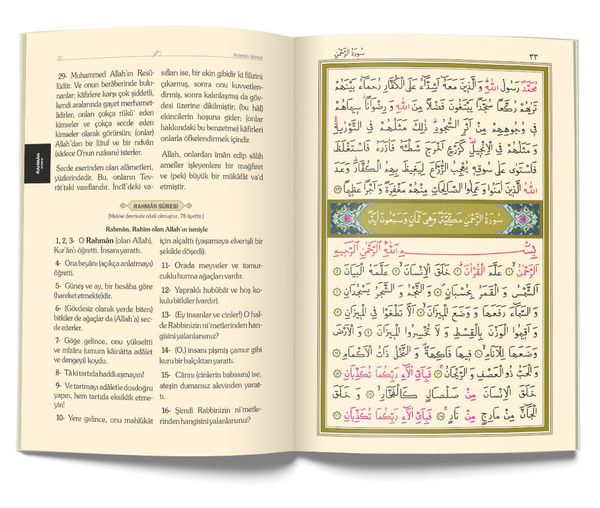 32
Rahmân Sûresi
29- Muhammed Allah'ın Resû-
lüdür. Ve onun berâberinde bulu-
nanlar; kâfirlere karşı çok şiddetli,
kendi aralarında gayet merhamet-
lidirler; onları çokça rükû' eden
kimseler ve çokça secde eden
kimseler olarak görürsün; (onlar)
Allah'dan bir lütuf ve bir rıdvân
(sâdece O'nun rızâsını) isterler.
Secde eserinden olan alâmetleri,
yüzlerindedir. Bu, onların Tevrât'taki vasıflarıdır. İncîl'deki va-
sıfları ise, bir ekin gibidir ki filizini
çıkarmış, sonra onu kuvvetlen-
dirmiş, sonra kalınlaşmış da göv-
desi üzerine dikilmiştir; (bu hâl)
ekincilerin hoşuna gider; (onlar
hakkındaki bu benzetme) kâfirleri
onlarla öfkelendirmek içindir.
Allah, onlardan îmân edip sâlih
ameller işleyenlere bir mağfiret
ve (pek) büyük bir mükâfât va'd
etmiştir.
RAHMÂN
RAHMÂN SÛRESİ
(Mekke devrinde nâzil olmuştur, 78 âyettir.)
Rahmân, Rahîm olan Allah'ın ismiyle
1, 2, 3- O Rahmân (olan Allah),
Kur'ân'ı öğretti. İnsanı yarattı.
4- Ona beyânı (açıkça anlatmayı)
öğretti.
5- Güneş ve ay, bir hesâba göre
(hareket etmekte)dir.
6- (Gövdesiz olarak yerde biten)
bitkiler de ağaçlar da (Allah'a) sec-
de ederler.
7- Göğe gelince, onu yükseltti
ve mîzânı (umum kâinâtta adâlet
ve dengeyi) koydu.
8- Tâ ki tartıda haddi aşmayın!
9- Ve tartmayı adâletle dosdoğru
yapın, hem tartıda eksiklik etme-
yin!
10- Yere gelince, onu mahlûkāt
için alçalttı (yaşamaya elverişli bir
şekilde döşedi).
11- Orada meyveler ve tomur-
cuklu hurma ağaçları vardır.
12- Yapraklı hubûbât ve hoş ko-
kulu bitkiler (vardır).
13- (Ey insanlar ve cinler!) O hal-
de Rabbinizin ni'metlerinden han-
gisini yalanlarsınız?
14- (O,) insanı pişmiş çamur gibi
kuru bir balçıktan yarattı.
15- Cânnı (cinlerin babasını) ise,
ateşin dumansız alevinden yarat-
tı.
16- Şimdi Rabbinizin ni'metle-
rinden hangisini yalanlarsınız?
سُورَةُ الرَّحْمٰنِ
٣٣
مُحَمَّدٌ رَسُولُ اللّٰهِ وَالَّذِينَ مَعَهُ اَشِدَّاءُ عَلَى الْكُفَّارِ رُحَمَاءُ بَيْنَهُمْ
تَرٰيهُمْ رُكَّعًا سُجَّدًا يَبْتَغُونَ فَضْلًا مِنَ اللّٰهِ وَرِضْوَانًا سِيمَاهُمْ
فِي وُجُوهِهِمْ مِنْ اَثَرِ السُّجُودِ ذٰلِكَ مَثَلُهُمْ فِي التَّوْرٰيةِ
وَمَثَلُهُمْ فِي الْاِنْجِيلِ كَزَرْعٍ اَخْرَجَ شَطْـَٔهُ فَاٰزَرَهُ فَاسْتَغْلَظَ
فَاسْتَوٰى عَلٰى سُوقِهِ يُعْجِبُ الزُّرَّاعَ لِيَغِيظَ بِهِمُ الْكُفَّارَ وَعَدَ
اللّٰهُ الَّذِينَ اٰمَنُوا وَعَمِلُوا الصَّالِحَاتِ مِنْهُمْ مَغْفِرَةً وَاَجْرًا عَظِيمًا ٢٩
سُورَةُ الرَّحْمٰنِ مَكِّيَّةٌ وَهِيَ ثَمَانٍ وَسَبْعُونَ اٰيَةً
بِسْمِ اللّٰهِ الرَّحْمٰنِ الرَّحِيمِ
اَلرَّحْمٰنُ ١ عَلَّمَ الْقُرْاٰنَ ٢ خَلَقَ الْاِنْسَانَ ٣ عَلَّمَهُ الْبَيَانَ ٤
اَلشَّمْسُ وَالْقَمَرُ بِحُسْبَانٍ ٥ وَالنَّجْمُ وَالشَّجَرُ يَسْجُدَانِ ٦
وَالسَّمَاءَ رَفَعَهَا وَوَضَعَ الْمِيزَانَ ٧ اَلَّا تَطْغَوْا فِي الْمِيزَانِ ٨
وَاَقِيمُوا الْوَزْنَ بِالْقِسْطِ وَلَا تُخْسِرُوا الْمِيزَانَ ٩ وَالْاَرْضَ
وَضَعَهَا لِلْاَنَامِ ١٠ فِيهَا فَاكِهَةٌ وَالنَّخْلُ ذَاتُ الْاَكْمَامِ ١١
وَالْحَبُّ ذُو الْعَصْفِ وَالرَّيْحَانُ ١٢ فَبِاَيِّ اٰلَاءِ رَبِّكُمَا تُكَذِّبَانِ ١٣
خَلَقَ الْاِنْسَانَ مِنْ صَلْصَالٍ كَالْفَخَّارِ ١٤ وَخَلَقَ
الْجَانَّ مِنْ مَارِجٍ مِنْ نَارٍ ١٥ فَبِاَيِّ اٰلَاءِ رَبِّكُمَا تُكَذِّبَانِ ١٦